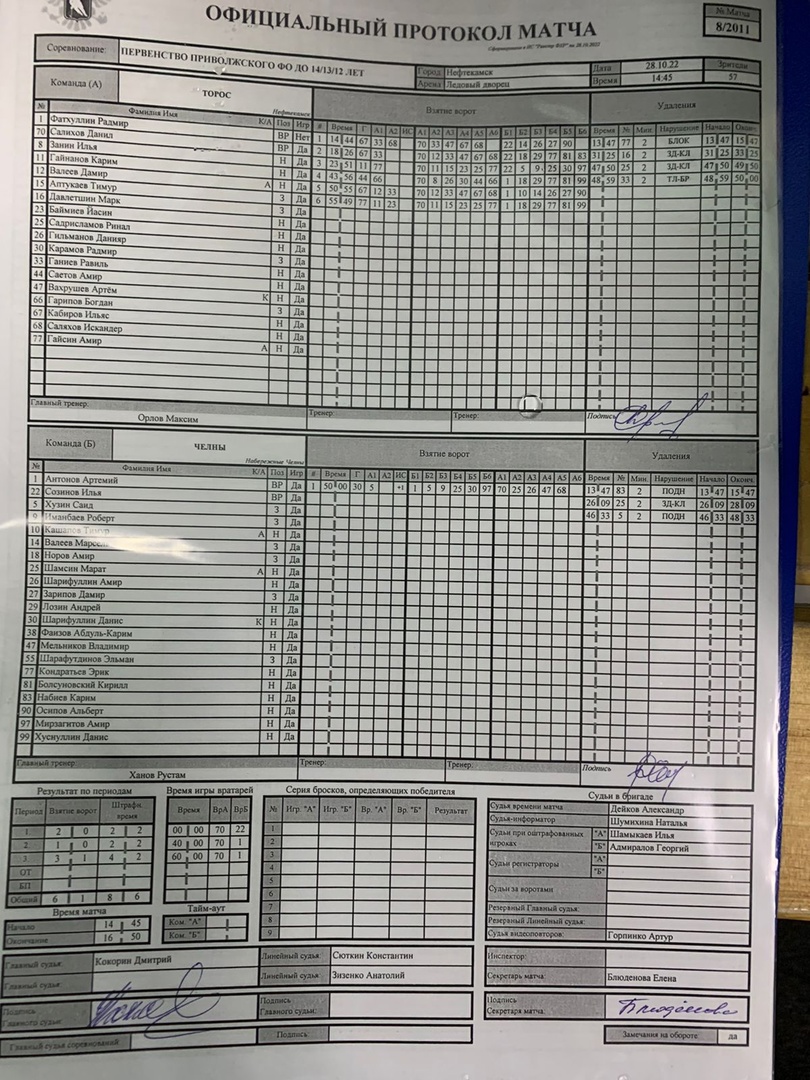 ОФИЦИАЛЬНЫЙ ПРОТОКОЛ МАТЧА
№ Матча
8/2011
Соревнование: ПЕРВЕНСТВО ПРИВОЛЖСКОГО ФО ДО 14/13/12 ЛЕТ
Город Нефтекамск Дата 28.10.22 Зрители
Арена Ледовый дворец Время 14:45 57
Команда (А) ТОРОС Нефтекамск Взятие ворот Удаления
№ Фамилия Имя К/А Поз Игр # Время Г А1 А2 ИС А1 А2 А3 А4 А5 А6 Б1 Б2 Б3 Б4 Б5 Б6 Время № Мин. Нарушение Начало Оконч.
1 Фатхуллин Радмир ВР Нет 1 14 44 67 33 68 70 33 47 67 68 22 14 26 27 90 13 47 77 2 БЛОК 13 47 15 47
70 Салихов Данил ВР Да 2 18 26 67 33 70 12 33 47 67 68 22 18 29 77 81 83 31 25 16 2 ЗД-КЛ 31 25 33 25
8 Занин Илья Н Да 3 23 51 11 77 70 11 15 23 25 77 22 5 9 25 30 97 47 50 25 2 ЗД-КЛ 47 50 49 50
11 Гайнанов Карим Н Да 4 43 56 44 66 70 8 26 30 44 66 1 18 29 77 81 99 48 59 33 2 ТЛ-БР 48 59 50 00
12 Валеев Дамир Н Да 5 50 55 67 12 33 70 12 33 47 67 68 1 10 14 26 27 90
15 Аптукаев Тимур А Н Да 6 55 49 77 11 23 70 11 15 23 25 77 1 18 29 77 81 99
16 Давлетшин Марк З Да
23 Баймиев Йасин З Да
25 Садрисламов Ринал Н Да
26 Гильманов Данияр Н Да
30 Карамов Радмир Н Да
33 Ганиев Равиль З Да
44 Саетов Амир Н Да
47 Вахрушев Артём Н Да
66 Гарипов Богдан К Н Да
67 Кабиров Ильяс З Да
68 Саляхов Искандер Н Да
77 Гайсин Амир А Н Да
Главный тренер: Орлов Максим Тренер: Тренер: Подпись
Команда (Б) ЧЕЛНЫ Набережные Челны Взятие ворот Удаления
№ Фамилия Имя К/А Поз Игр # Время Г А1 А2 ИС Б1 Б2 Б3 Б4 Б5 Б6 А1 А2 А3 А4 А5 А6 Время № Мин. Нарушение Начало Оконч.
1 Антонов Артемий ВР Да 1 50 00 30 5 +1 1 5 9 25 30 97 70 25 26 47 68 13 47 83 2 ПОДН 13 47 15 47
22 Созинов Илья ВР Да 26 09 25 2 ЗД-КЛ 26 09 28 09
5 Хузин Саид З Да 46 33 5 2 ПОДН 46 33 48 33
9 Иманбаев Роберт З Да
10 Кашапов Тимур А Н Да
14 Валеев Марсель З Да
18 Норов Амир З Да
25 Шамсин Марат А Н Да
26 Шарифуллин Амир Н Да
27 Зарипов Дамир З Да
29 Лозин Андрей Н Да
30 Шарифуллин Данис К Н Да
38 Фаизов Абдуль-Карим Н Да
47 Мельников Владимир Н Да
55 Шарафутдинов Эльман З Да
77 Кондратьев Эрик Н Да
81 Болсуновский Кирилл Н Да
83 Набиев Карим Н Да
90 Осипов Альберт Н Да
97 Мирзагитов Амир Н Да
99 Хуснуллин Данис Н Да
Главный тренер Ханов Рустам Тренер: Тренер: Подпись
Результат по периодам Время игры вратарей Серия бросков, определяющих победителя Судьи в бригаде
Период Взятие ворот Штрафн. время Время ВрА ВрБ № Игр. "А" Игр. "Б" Вр. "А" Вр. "Б" Результат
1 2 0 2 2 00 00 70 22 1
2 1 0 2 2 40 00 70 1 2
3 3 1 4 2 60 00 70 1 3
ОТ 4
БП 5
Общий 6 1 8 6 6
Время матча Тайм-аут 7
Начало 14 45 Ком. "А" 8
Окончание 16 50 Ком. "Б" 9
Судья времени матча Дейков Александр
Судья-информатор Шумихина Наталья
Судьи при оштрафованных игроках "А" Шамыкаев Илья
"Б" Адмиралов Георгий
Судьи регистраторы "А"
"Б"
Судьи за воротами
Резервный Главный судья:
Резервный Линейный судья:
Судья видеоповторов: Горпинко Артур
Главный судья: Кокорин Дмитрий Линейный судья: Сюткин Константин Инспектор:
Главный судья: Линейный судья: Зизенко Анатолий Секретарь матча: Блюденова Елена
Подпись Главного судьи: Подпись Главного судьи: Подпись Секретаря матча: Блюденова
Главный судья соревнований Подпись: Замечания на обороте да